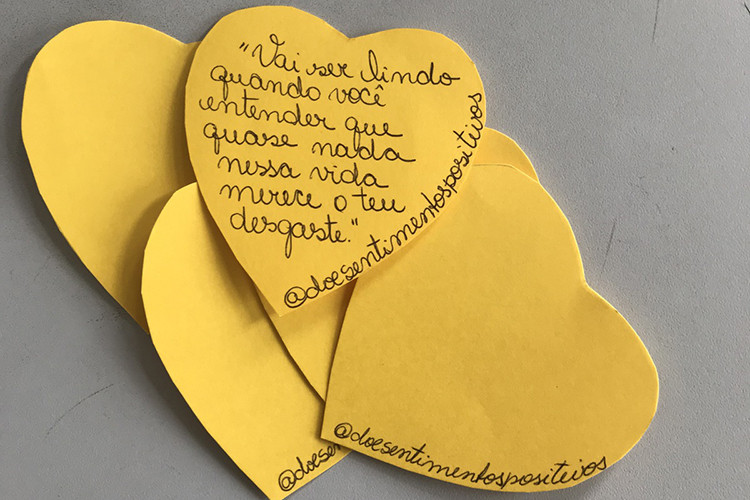 "Vai ser lindo
quando você
entender que
quase nada
nessa vida
merece o teu
desgaste."
@doesentimentospositivos
@doesentimentospositivos
@doesen